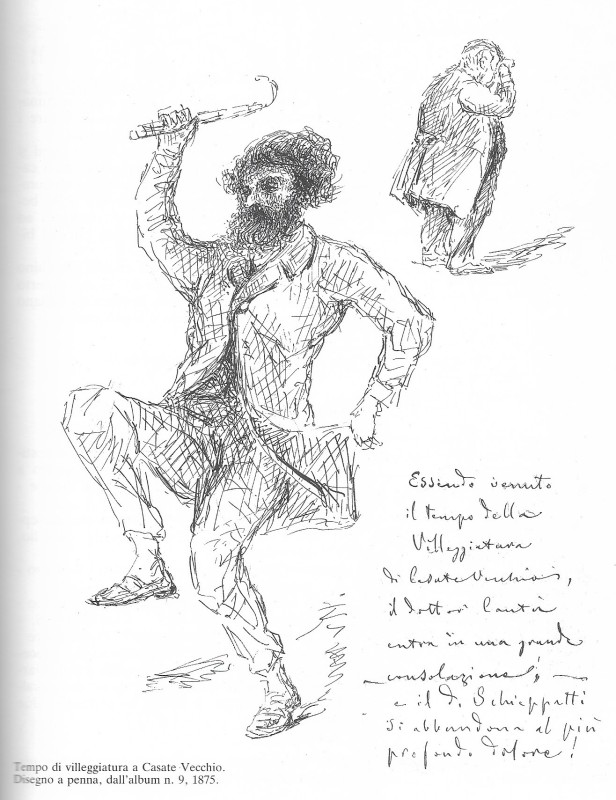 Essendo venuto
il tempo della
Villeggiatura
di Casate Vecchio,
il dottor Cantù
entra in una grande
consolazione;
e il d. Schieppatti
si abbandona al più
profondo dolore!
Tempo di villeggiatura a Casate Vecchio.
Disegno a penna, dall'album n. 9, 1875.